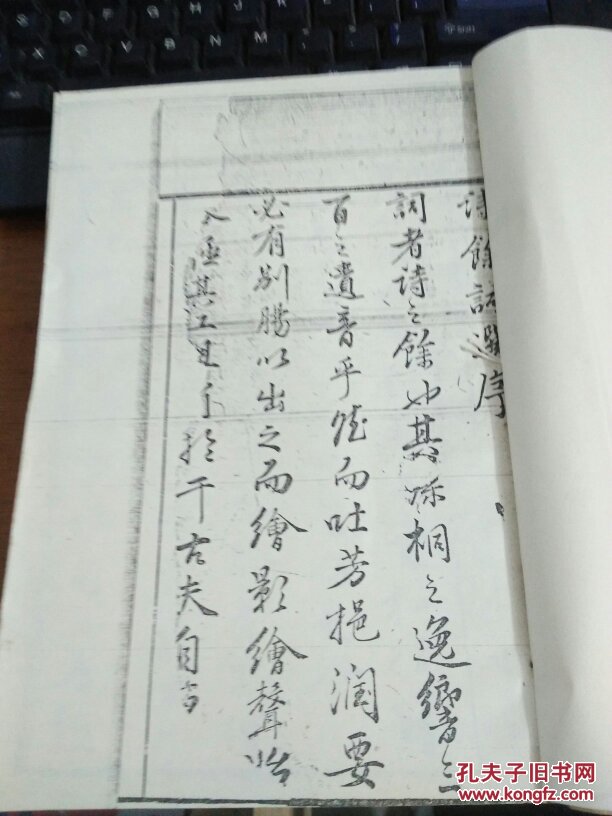 詩餘試選序
詞者詩之餘也其孫桐之逸響三
百之遺音乎然而吐芳挹潤要
必有別腸以出之而繪影繪聲
其工于千古夫自
孔夫子旧书网
www.kongfz.com